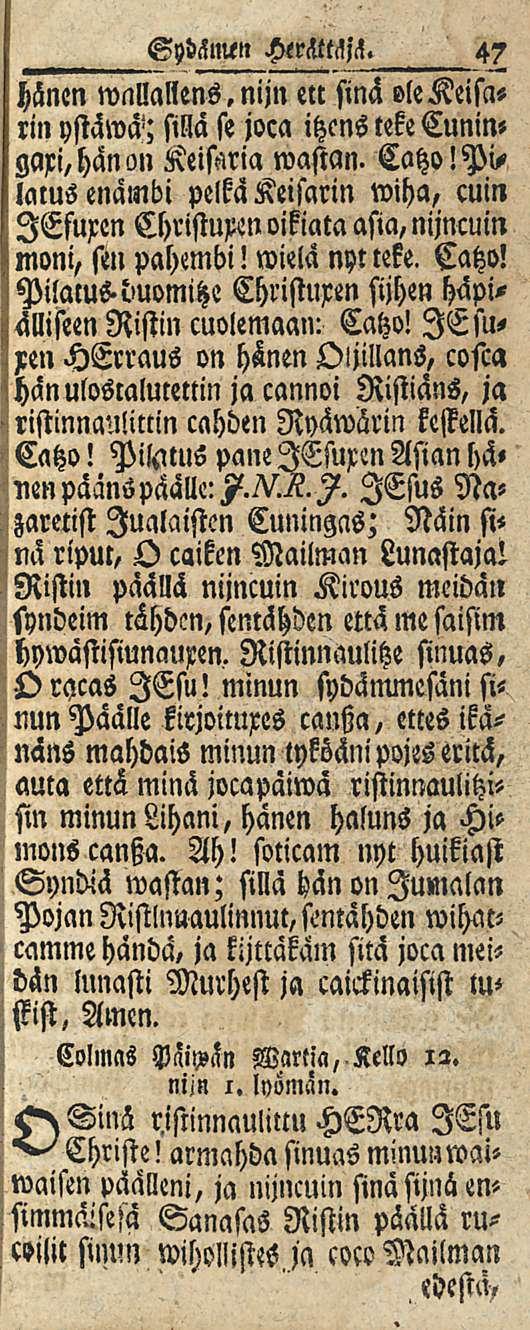 Sydämen Herättäjä. 47
hänen wallallens, nijn ett sinä ole Keisa⸗
rin ystäwä; sillä se joca itzens teke Cunin⸗
gaxi, hän on Keisaria wastan. Catzo! Pi⸗
latus enämbi pelkä Keisarin wiha, cuin
JEsuxen Christuxen oikiata asia, nijncuin
moni, sen pahembi! wielä nyt teke. Catzo!
Pilatus duomitze Christuxen sijhen häpi⸗
älliseen Ristin cuolemaan: Catzo! JEsu⸗
xen HErraus on hänen Olijillans, cosca
hän ulostalutettin ja cannoi Ristiäns, ja
ristinnaulittin cahden Ryäwärin keskellä.
Catzo! Pilatus pane JEsuxen Asian hä⸗
nen pääns päälle: J.N.R.J. JEsus Na⸗
zaretist Jualaisten Cuningas; Näin si⸗
nä riput, O caiken Mailman Lunastaja!
Ristin päällä nijncuin Kirous meidän
syndeim tähden, sentähden että me saisim
hywästisiunauxen. Ristinnaulitze sinuas,
O racas JEsu! minun sydämmesäni si⸗
nun Päälle kirjoituxes canßa, ettes ikä⸗
näns mahdais minun tyköäni pojes eritä,
auta että minä jocapäiwä ristinnaulitzi⸗
sin minun Lihani, hänen haluns ja Hi⸗
mons canßa. Ah! soticam nyt huikiast
Syndiä wastan; sillä hän on Jumalan
Pojan Ristinnaulinnut, sentähden wihat⸗
camme händä, ja kijttäkäm sitä joca mei⸗
dän lunasti Murhest ja caickinaisist tu⸗
skist, Amen.
Colmas Päiwän Wartia, Kello 12.
nijn 1. lyömän.
O Sinä ristinnaulittu HERra JEsu
Christe! armahda sinuas minun wai⸗
waisen päälleni, ja nijncuin sinä sijnä en⸗
simmäisesä Sanasas Ristin päällä ru⸗
coilit sinun wihollistes ja coco Mailman
edestä,